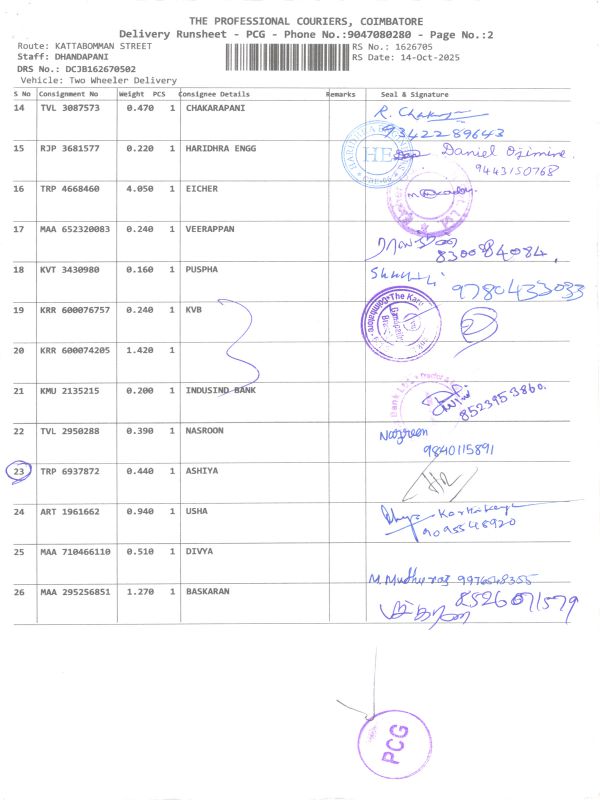 THE PROFESSIONAL COURIERS, COIMBATORE
Delivery Runsheet - PCG - Phone No.:9047080280 - Page No.:2
Route: KATTABOMMAN STREET RS No.: 1626705
Staff: DHANDAPANI RS Date: 14-Oct-2025
DRS No.: DCJB162670502
Vehicle: Two Wheeler Delivery
S No Consignment No Weight PCS Consignee Details Remarks Seal & Signature
14 TVL 3087573 0.470 1 CHAKARAPANI
9342289643
15 RJP 3681577 0.220 1 HARIDHRA ENGG Daniel
HE
9443150768
16 TRP 4668460 4.050 1 EICHER
17 MAA 652320083 0.240 1 VEERAPPAN
8300884084
18 KVT 3430980 0.160 1 PUSPHA
9780433033
19 KRR 600076757 0.240 1 KVB 2
20 KRR 600074205 1.420 1
21 KMU 2135215 0.200 1 INDUSIND BANK
8523953860.
22 TVL 2950288 0.390 1 NASROON Nazreen
9840115891
23 TRP 6937872 0.440 1 ASHIYA
24 ART 1961662 0.940 1 USHA
9095548920
25 MAA 710466110 0.510 1 DIVYA
M. Muthuraj 9976548355
26 MAA 295256851 1.270 1 BASKARAN 8526071579
PCG